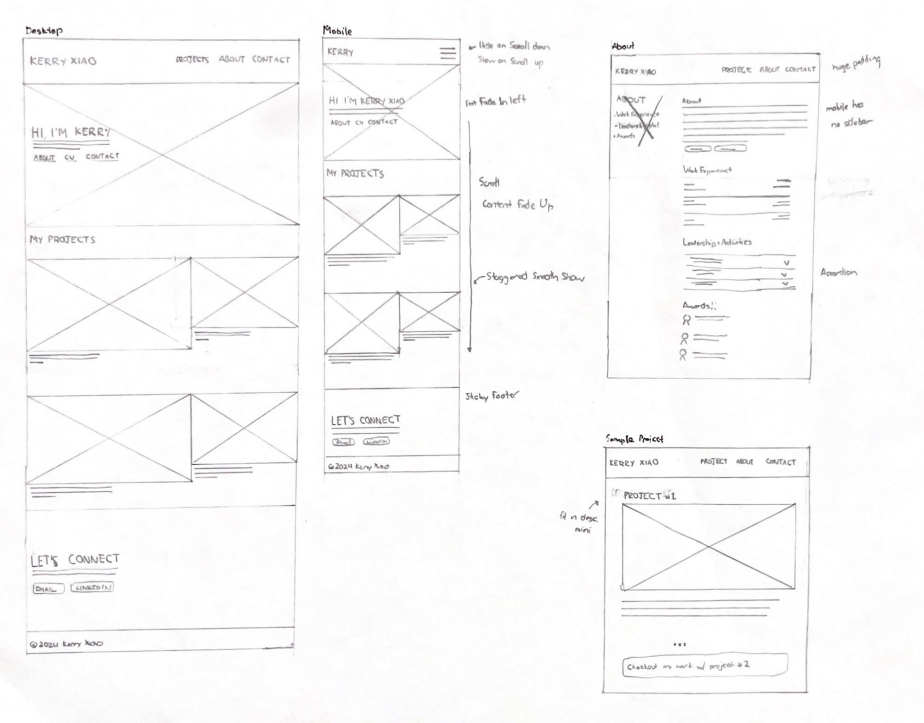 Desktop
KERRY XIAO
PROJECTS ABOUT CONTACT
HI, I'M KERRY
ABOUT CV CONTACT
MY PROJECTS
LET'S CONNECT
EMAIL LINKEDIN
© 2024 Kerry Xiao
Mobile
KERRY
HI I'M KERRY XIAO
ABOUT CV CONTACT
MY PROJECTS
LET'S CONNECT
Email LinkedIn
© 2024 Kerry Xiao
Hide on Scroll down
Show on Scroll up
Fade In left
Scroll
Content Fade Up
Staggered Smooth Show
Sticky Footer
About
KERRY XIAO
PROJECT ABOUT CONTACT
ABOUT
Work Experience
Awards
About
Work Experience
Leadership + Activities
Awards
huge padding
mobile has
no sidebar
Accordion
Sample Project
KERRY XIAO
PROJECT ABOUT CONTACT
PROJECT #1
fit in desc
mini
...
Checkout my work w/ project #2